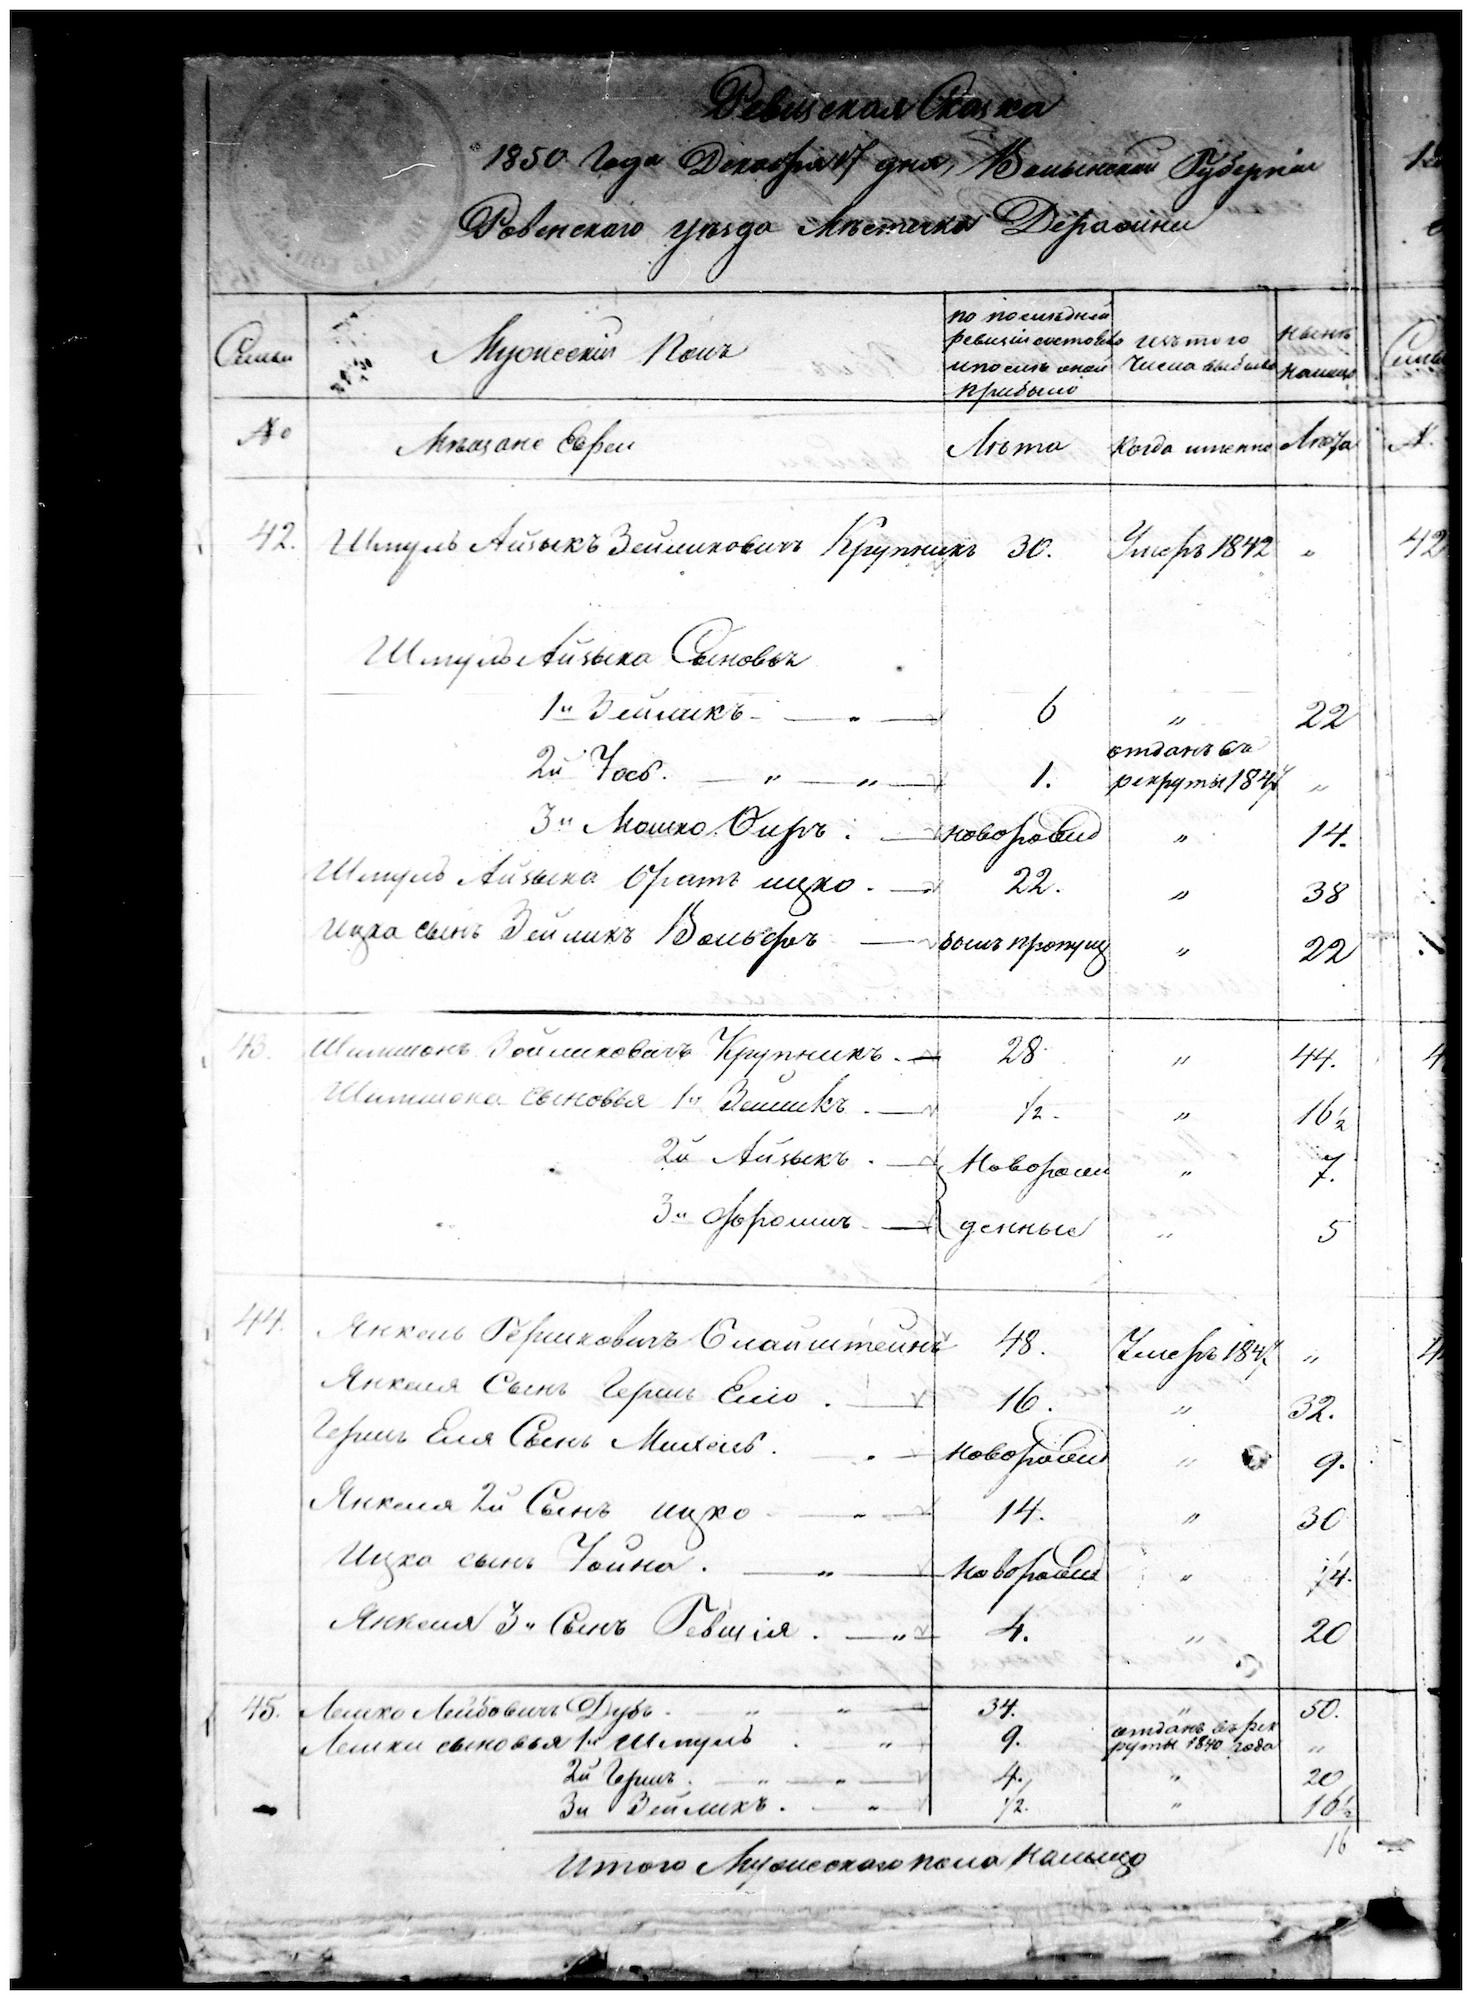 Ревизская Сказка
1850 Года Декабря 17 дня, Волынской Губернии
Ровенского уезда Местечка Деражни
Семьи
Мужеский Полъ
по последней ревизіи состояло и после оной прибыло
изъ того числа выбыло
ныне налицо
Семьи
№
Мещане Евреи
Лета
Когда именно
Лета
№
42. Шмуль Айзыкъ Зейликовичъ Крупникъ 30. Умеръ 1842 " 42
Шмуль Айзыка Сыновья
1й Зейликъ - " - 6 " 22
2й Иось. - " - " - 1. отданъ въ рекруты 1847 "
3й Мошко Оиръ. - новорожд " 14.
Шмуль Айзыка братъ ицко. - 22. " 38
Ицка сынъ Зейликъ Вольфъ - былъ пропущ " 22
43. Шимшонъ Зейликовичъ Крупникъ. - 28 " 44.
Шимшона сыновья 1й Зейликъ. - 1/2. " 16 1/2
2й Айзыкъ. - новорож " 7.
3й Фроимъ - денные " 5
44. Янкель Гершковичъ Слайштейнъ 48. Умеръ 1847 "
Янкеля Сынъ Герш Елю. - 16. " 32.
Гершъ Еля Сынъ Михель. - новорожд " 9.
Янкеля 2й Сынъ ицко - " - 14. " 30
Ицка сынъ Иойна. - " - новорожд " 1/4.
Янкеля 3й Сынъ Гевшія. - " 4. " 20
45. Лешко Лейбовичъ Дубъ. - " - " - 34. " 50.
Лешки сыновья 1й Шмуль. " - 9. отданъ въ рекруты 1840 года "
2й Герш. - " - " - 4. " 20
3й Зейликъ. - " - 1/2. " 16 1/2
Итого Мужескаго пола налицо 16